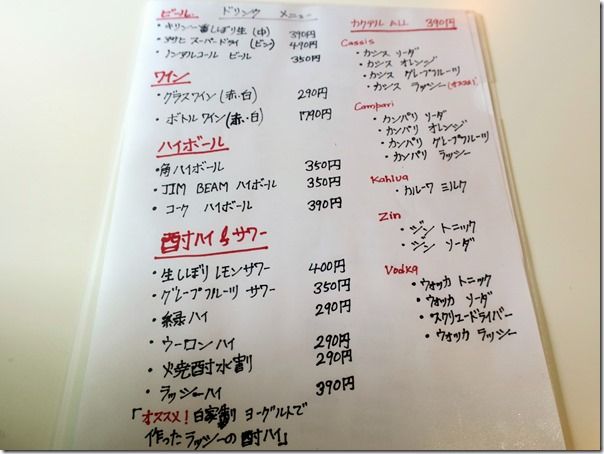 ビール ドリンク メニュー
・キリン一番しぼり生（中） 390円
・アサヒ スーパードライ（ビン） 490円
・ノンアルコール ビール 350円
ワイン
・グラスワイン（赤・白） 290円
・ボトル ワイン（赤・白） 1790円
ハイボール
・角ハイボール 350円
・JIM BEAM ハイボール 350円
・コーク ハイボール 390円
酎ハイ & サワー
・生しぼりレモンサワー 400円
・グレープフルーツ サワー 350円
・緑ハイ 290円
・ウーロンハイ 290円
・焼酎水割 290円
・ラッシーハイ 390円
「オススメ！自家製 ヨーグルトで
作ったラッシーの酎ハイ」
カクテル ALL 390円
Cassis
・カシス ソーダ
・カシス オレンジ
・カシス グレープフルーツ
・カシス ラッシー（オススメ）
Campari
・カンパリ ソーダ
・カンパリ オレンジ
・カンパリ グレープフルーツ
・カンパリ ラッシー
Kahlua
・カルーワ ミルク
Zin
・ジン トニック
・ジン ソーダ
Vodka
・ウォッカ トニック
・ウォッカ ソーダ
・スクリュードライバー
・ウォッカ ラッシー